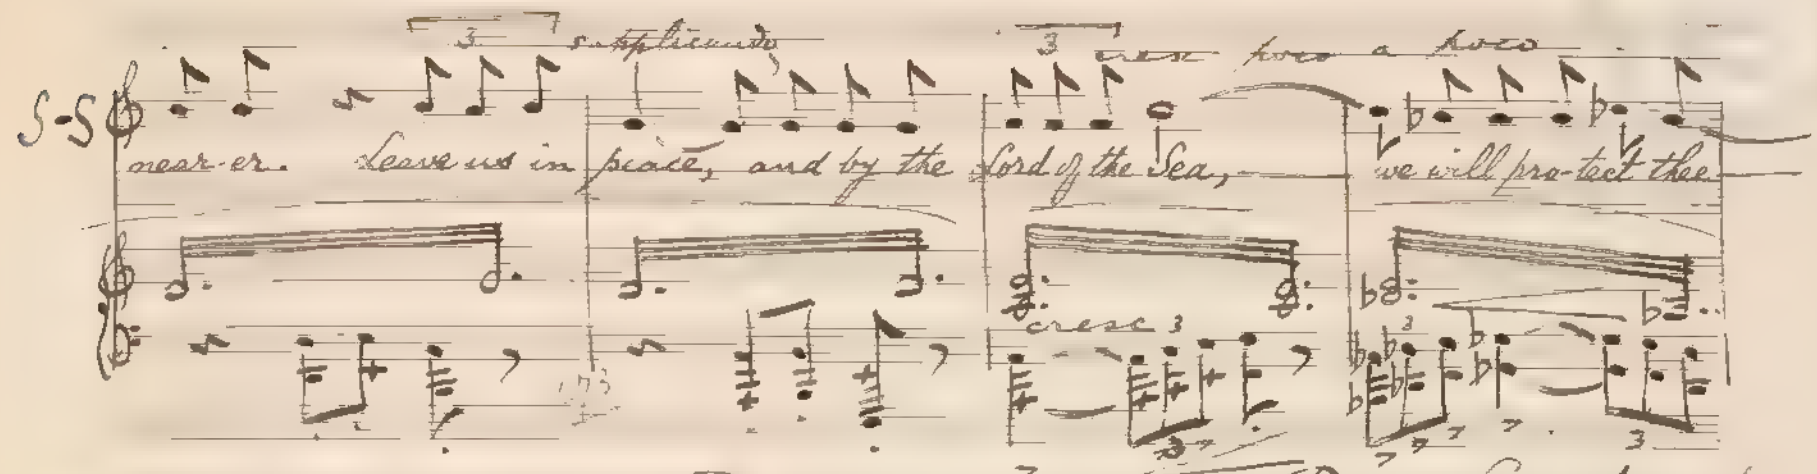 3 supplicando 3 cresc poco a poco
S-S
near-er. Leave us in peace, and by the Lord of the Sea, we will pro-tect thee
cresc 3 3
3 3